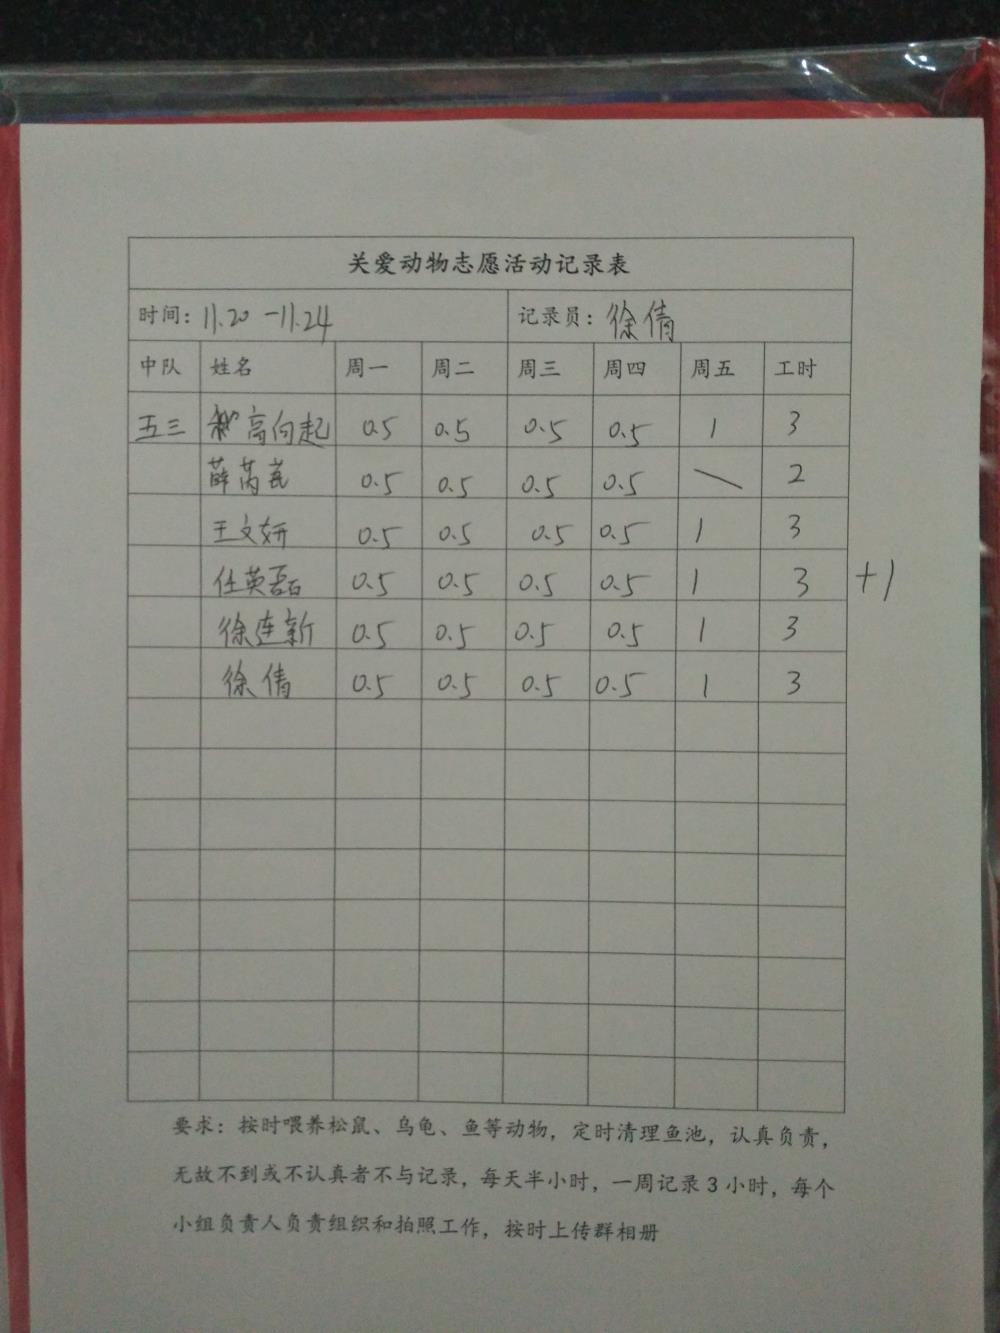 关爱动物志愿活动记录表
时间：11.20－11.24 记录员：徐倩
中队 姓名 周一 周二 周三 周四 周五 工时
五三 高向起 0.5 0.5 0.5 0.5 1 3
薛芮芄 0.5 0.5 0.5 0.5 \ 2
王文妍 0.5 0.5 0.5 0.5 1 3
任英磊 0.5 0.5 0.5 0.5 1 3 +1
徐连新 0.5 0.5 0.5 0.5 1 3
徐倩 0.5 0.5 0.5 0.5 1 3
要求：按时喂养松鼠、乌龟、鱼等动物，定时清理鱼池，认真负责，
无故不到或不认真者不与记录，每天半小时，一周记录3小时，每个
小组负责人负责组织和拍照工作，按时上传群相册